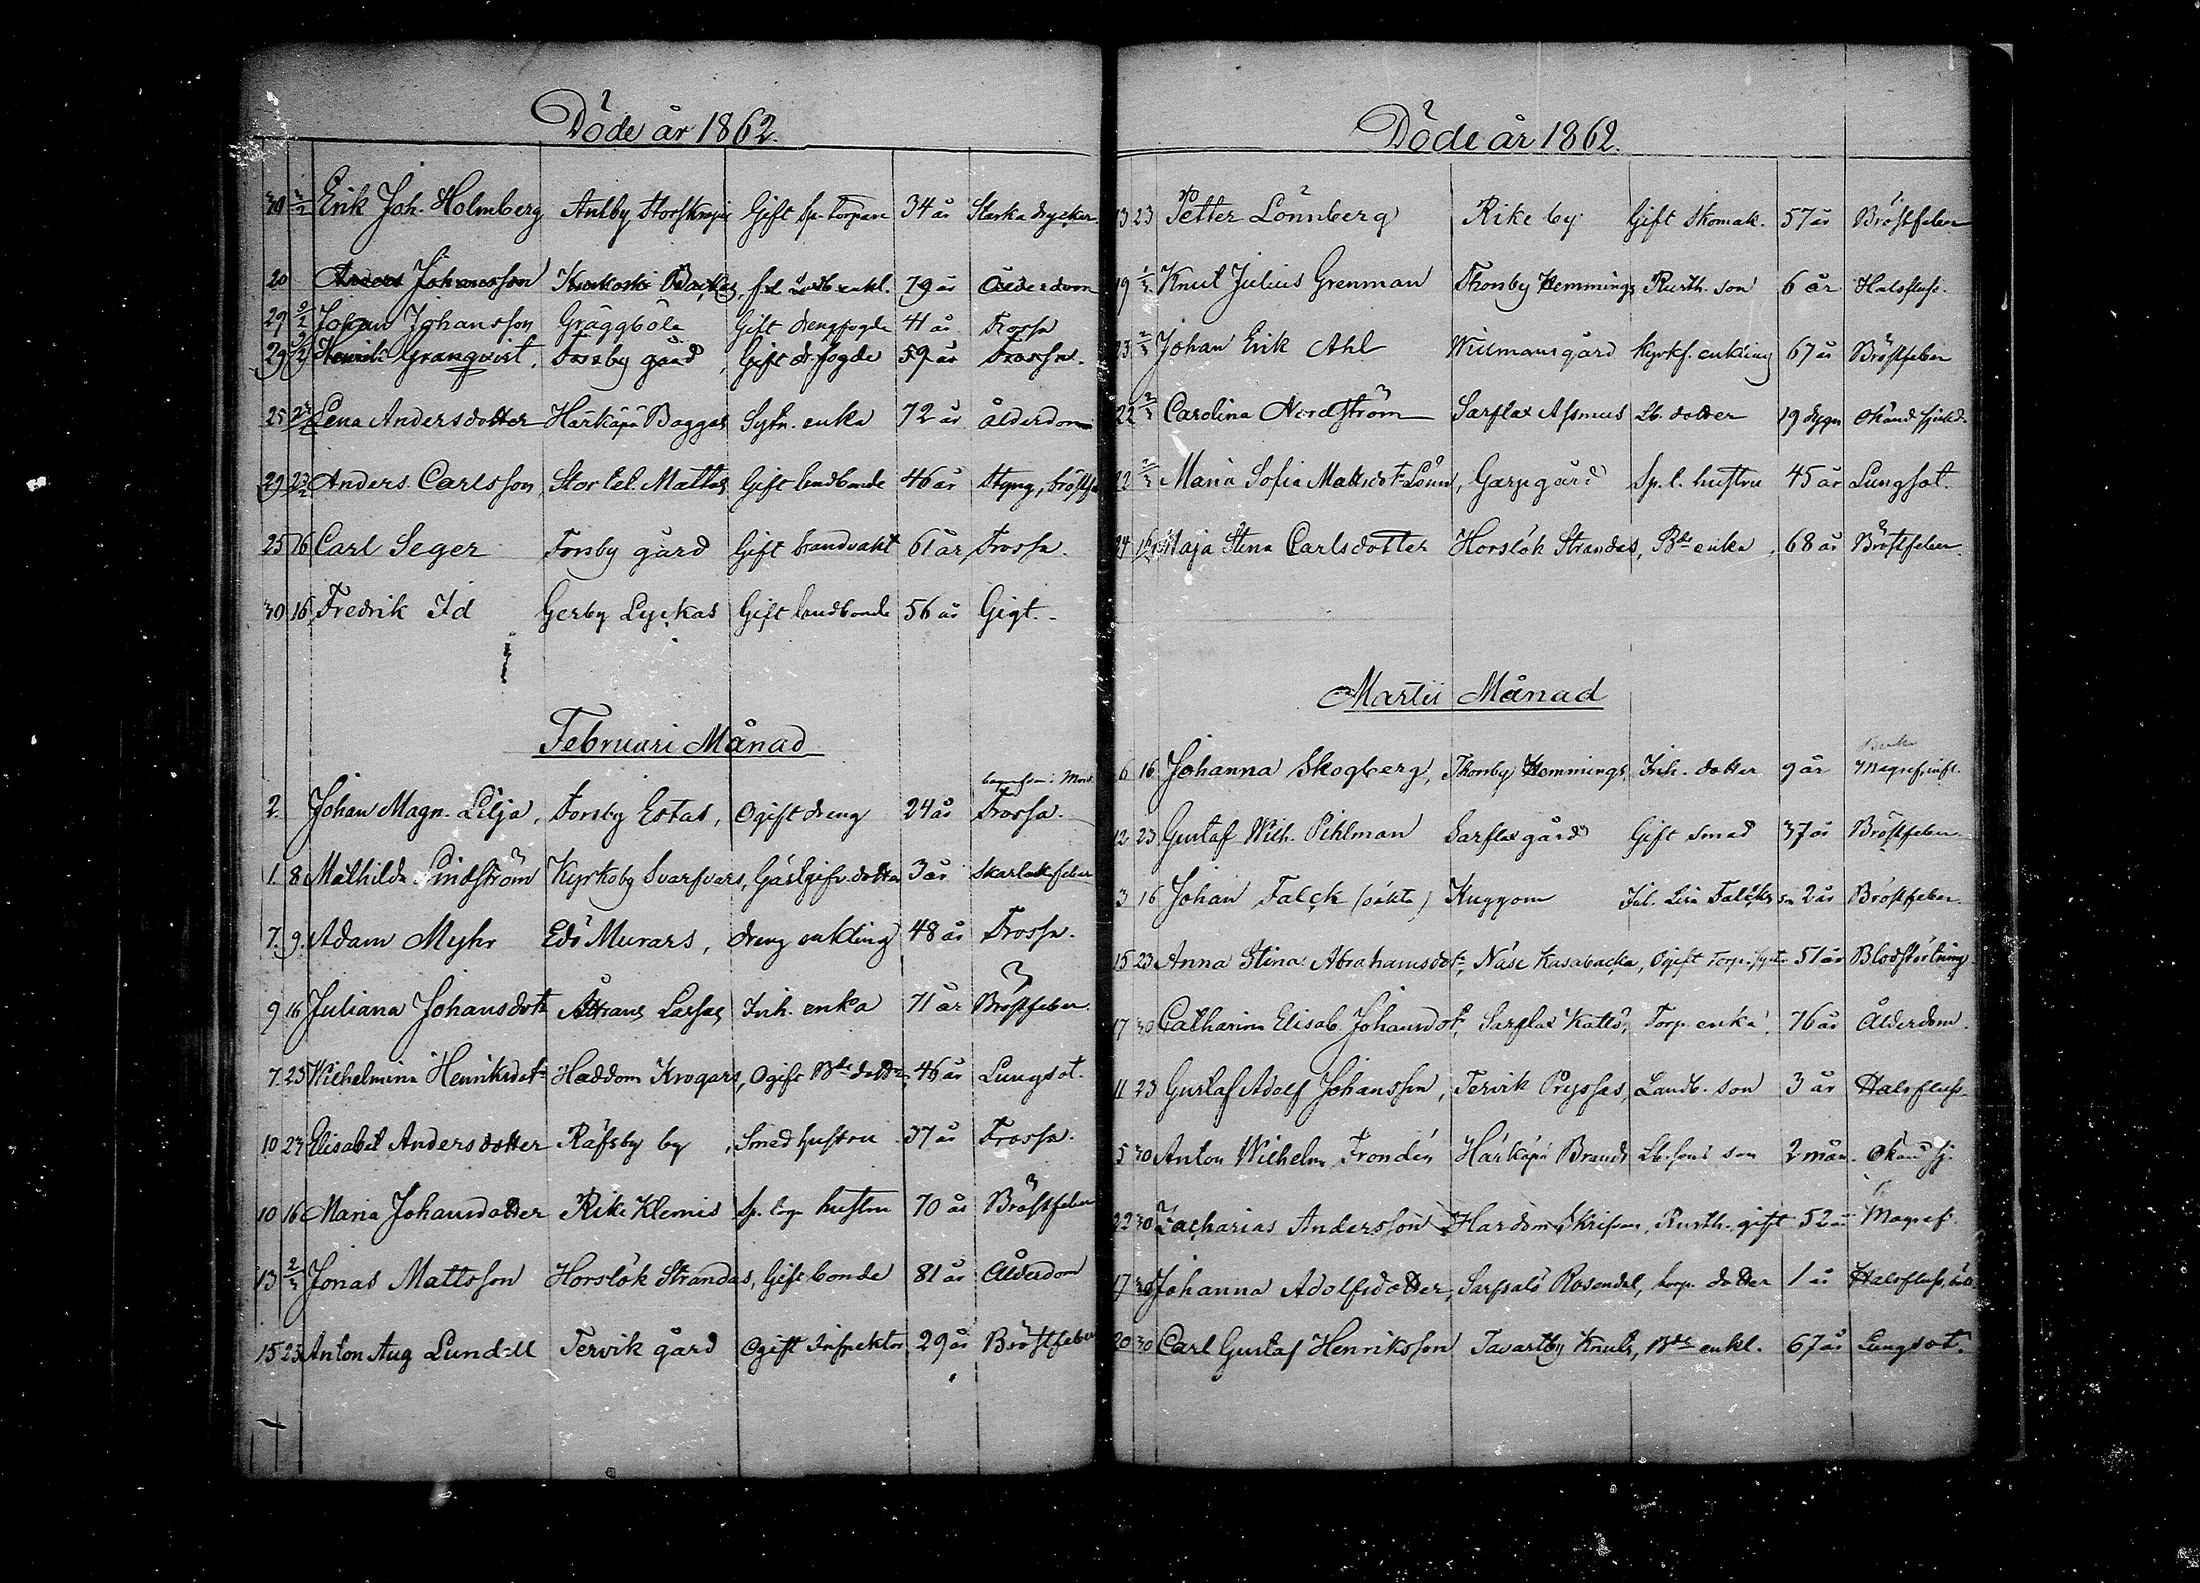 Döde år 1862.
30 2/2 Erik Joh. Holmberg Antby Storskrepis Gift sp. Torpare 34 år Starka drycker
20 Johansson Backas, enkl. 79 år Ålderdom
29 9/2 Johan Johansson Gräggböle Gift drengfogde 41 år Frossa
29 Henrik Granqvist, Forsby gård, Gift dr. fogde 59 år Frossa.
25 Lena Andersdotter Härkäpä Baggas Sytn. enka 72 år ålderdom
29 23/2 Anders Carlsson Mattas Gift landbonde 46 år Styng,
25 16 Carl Seger Forsby gård Gift brandvakt 61 år, Frossa.
30 16 Fredrik Id Gerby Lyckas Gift landbonde 56 år Gigt.
Februari Månad
2. Johan Magn. Lilja, Forsby Estas, Ogift dreng 24 år Frossa.
1. 8 Mathilda Lindström Kyrkoby Svarfvars, Gästgifv. dotter 3 år Skarlakfeber
7. 9. Adam Myhr Edö Murars, dreng enkling 48 år Frossa.
9 16 Juliana Johansdotr Lassas Inh. enka 71 år Bröstfeber.
7. 23 Wilhelmina Henriksdotr Haddom Krogars, Ogift Bde dotter 46 år Lungsot.
10 23 Elisabet Andersdotter Räfsby by, Smed hustru 37 år Frossa.
10 16 Maria Johansdotter Rike Klemis hustru 70 år Bröstfeber
13 2/3 Jonas Mattsson Horslök Strandas, Gift bonde 81 år Ålderdom
15 23 Anton Aug Lundell Tervik gård Ogift Inspektor 29 år Bröstfeber
Döde år 1862.
13 23 Petter Lönnberg Rike by Gift Skomak. 57 år Bröstfeber
19 Knut Julius Grenman Thorsby Hemmings Rusth. son 6 år Halsfluss.
23 2/3 Johan Erik Ahl gård enkling 67 år Bröstfeber
22 2/3 Carolina Nordström Sarflax Assmus Lb. dotter 19 dygn okänd sjukd.
12 2/3 Maria Sofia Mattsdotr Lönn, Garpgård Sp. l. hustru 45 år Lungsot.
24 16/3 Maja Stina Carlsdotter Horslök Strandas, Bde enka, 68 år Bröstfeber.
Martii Månad
6 16 Johanna Skogberg, Thorsby Hemmings, Inh. dotter 9 år
12 23 Gustaf Wilh. Pihlman Sarflax gård Gift Smed 37 år Bröstfeber.
3 16 Johan Falck (oäkta) Kuggom Lisa Falcks sn 2 år Bröstfeber.
15 23 Anna Stina Abrahamsdotr, Näse Kasabacka, Ogift 51 år Blodstörtning
17 30 Catharina Elisab. Johansdotr, Sarflax Torp. enka, 76 år Ålderdom.
11 23 Gustaf Adolf Johansson, Tervik Pryssas, Landb. son 3 år Halsfluss
5 30 Anton Wilhelm Frondén Härkäpä Brands son 2 mån. Okänd sj.
22 30 Zacharias Andersson Hardom Rusth. gift 52 år
17 30 Johanna Adolfsdotter, Rosendal, torp. dotter 1 år Halsfluss,
20 30 Carl Gustaf Henriksson Tavastby Knuts, Bde enkl. 67 år Lungsot.